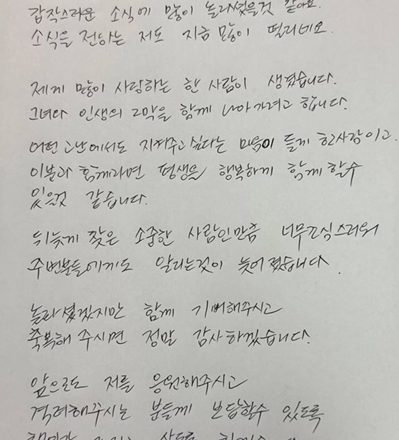 갑작스러운 소식에 많이 놀라셨을것 같아요.
소식을 전하는 저도 지금 많이 떨리네요.
제게 많이 사랑하는 한 사람이 생겼습니다.
그녀와 인생의 2막을 함께 나아가려고 합니다.
어떤 고난에서도 지켜주고 싶다는 마음이 들게 한 사람이고
이분과 함께라면 평생을 행복하게 함께 할수
있을것 같습니다.
뒤늦게 찾은 소중한 사람인만큼 너무 조심스러워
주변분들에게도 알리는것이 늦어졌습니다.
놀라셨겠지만 함께 기뻐해주시고
축복해 주시면 정말 감사하겠습니다.
앞으로도 저를 응원해주시고
격려해주시는 분들께 보답할수 있도록